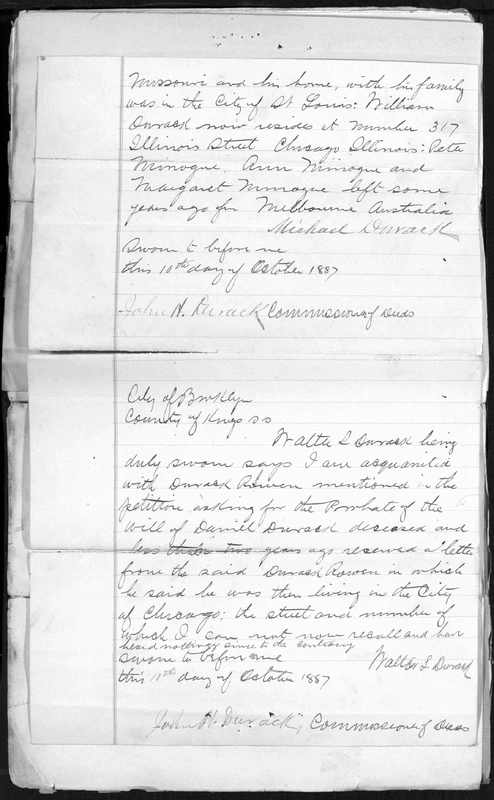 Missouri and his home, with his family
was in the City of St Louis: William
Durack now resides at number 317
Illinois Street Chicago Illinois: Pete
Minogue, Ann Minogue and
Margaret Minogue left some
years ago for Melbourne Australia
Michael Durack
Sworn to before me
this 10th day of October 1887
John H. Durack Commissioner of Deeds
City of Brooklyn
County of Kings ss
Walter L Durack being
duly sworn says I am acquainted
with Durack Rowen mentioned in the
petition asking for the Probate of the
Will of Daniel Durack deceased and
two years ago received a letter
from the said Durack Rowen in which
he said he was then living in the City
of Chicago: the street and number of
which I can not now recall and have
heard nothing since to the contrary
Sworn to before me
Walter L Durack
this 10th day of October 1887
John H. Durack, Commissioner of Deeds